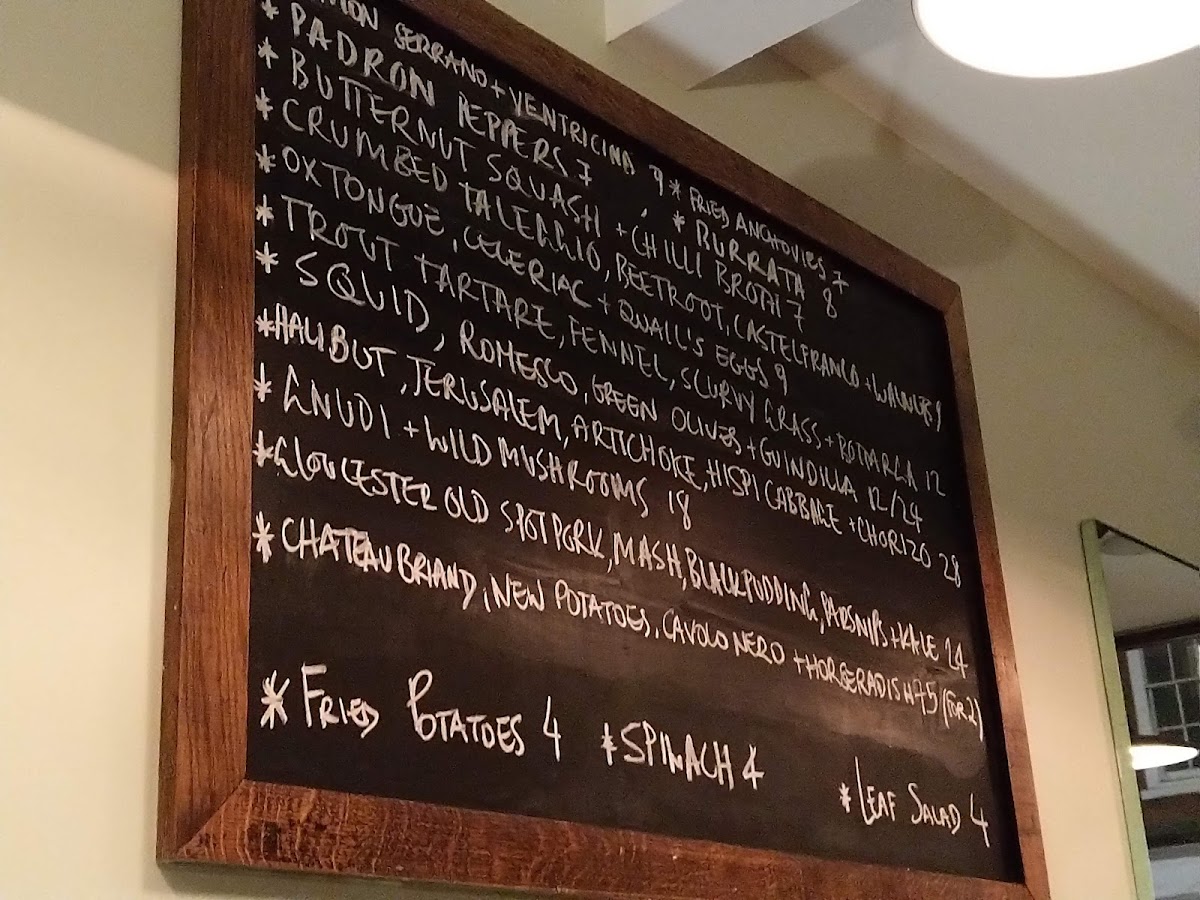 SERRANO + VENTRICINA 9 * FRIED ANCHOVIES 7
* PADRON PEPPERS 7 * BURRATA 8
* BUTTERNUT SQUASH + CHILLI BROTH 7
* CRUMBED TALEGGIO, BEETROOT, CASTELFRANCO + WALNUTS 9
* OX TONGUE, CELERIAC + QUAIL'S EGGS 9
* TROUT TARTARE, FENNEL, SCURVY GRASS + BOTARGA 12
* SQUID, ROMESCO, GREEN OLIVES + GUINDILLA 12/24
* HALIBUT, JERUSALEM, ARTICHOKE, HISPI CABBAGE + CHORIZO 28
* GNUDI + WILD MUSHROOMS 18
* GLOUCESTER OLD SPOT PORK, MASH, BLACK PUDDING, PARSNIPS + KALE 24
* CHATEAUBRIAND, NEW POTATOES, CAVOLO NERO + HORSERADISH 75 (FOR 2)
* FRIED POTATOES 4 * SPINACH 4 * LEAF SALAD 4